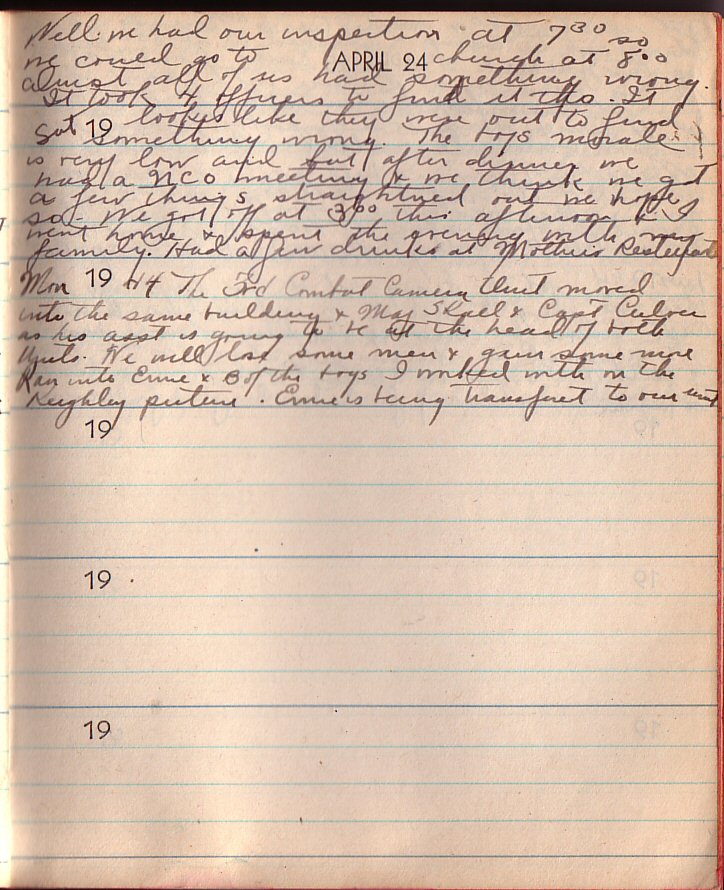 Well we had our inspection at 7³⁰ so
we could go to APRIL 24 church at 8⁰⁰
almost all of us had something wrong.
It took 4 officers to find it tho. It
Sat 19 looks like they were out to find
something wrong. The boys morale
is very low and but after dinner we
had a NCO meeting & we think we got
a few things straightned out we hope
so. We got off at 3⁰⁰ this afternoon & I
went home & spent the evening with my
family. Had a few drinks at Mothers
Mon 19 44 The 3rd Combat Camera Unit moved
into the same building & Maj & Capt Culver
as his asst is going to be at the head of both
Units. We will lose some men & gain some more
Ran into Ernie & 3 of the boys I worked with on the
Keighley picture. Ernie is being transfret to our unit
19
19
19